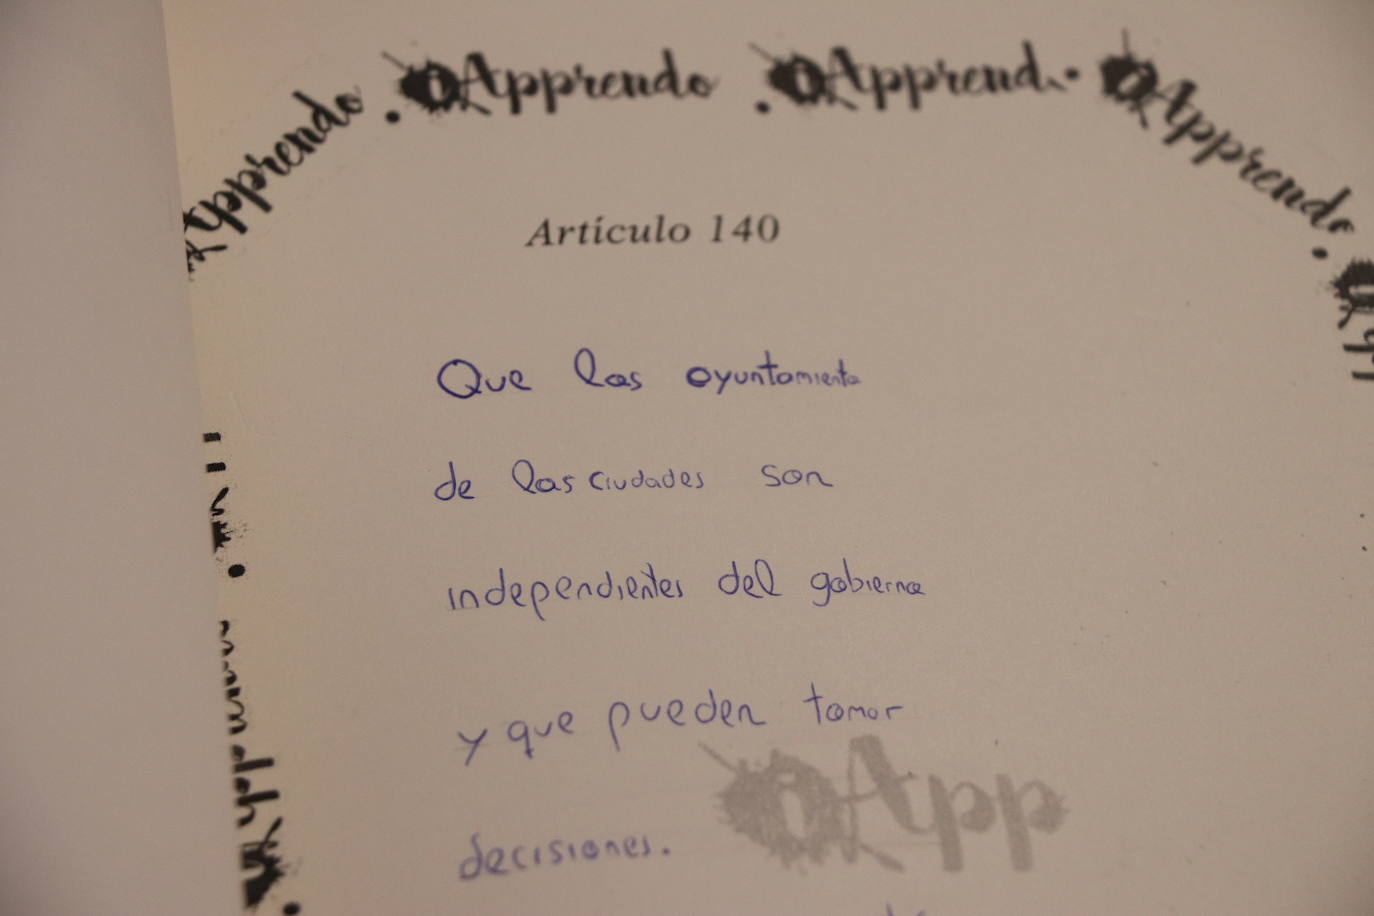 Apprendo
Apprendo
Apprend
Apprendo
App
Artículo 140
Que las ayuntamiento
de las ciudades son
independientes del gobierno
y que pueden tomar
decisiones.
App
Apprendo